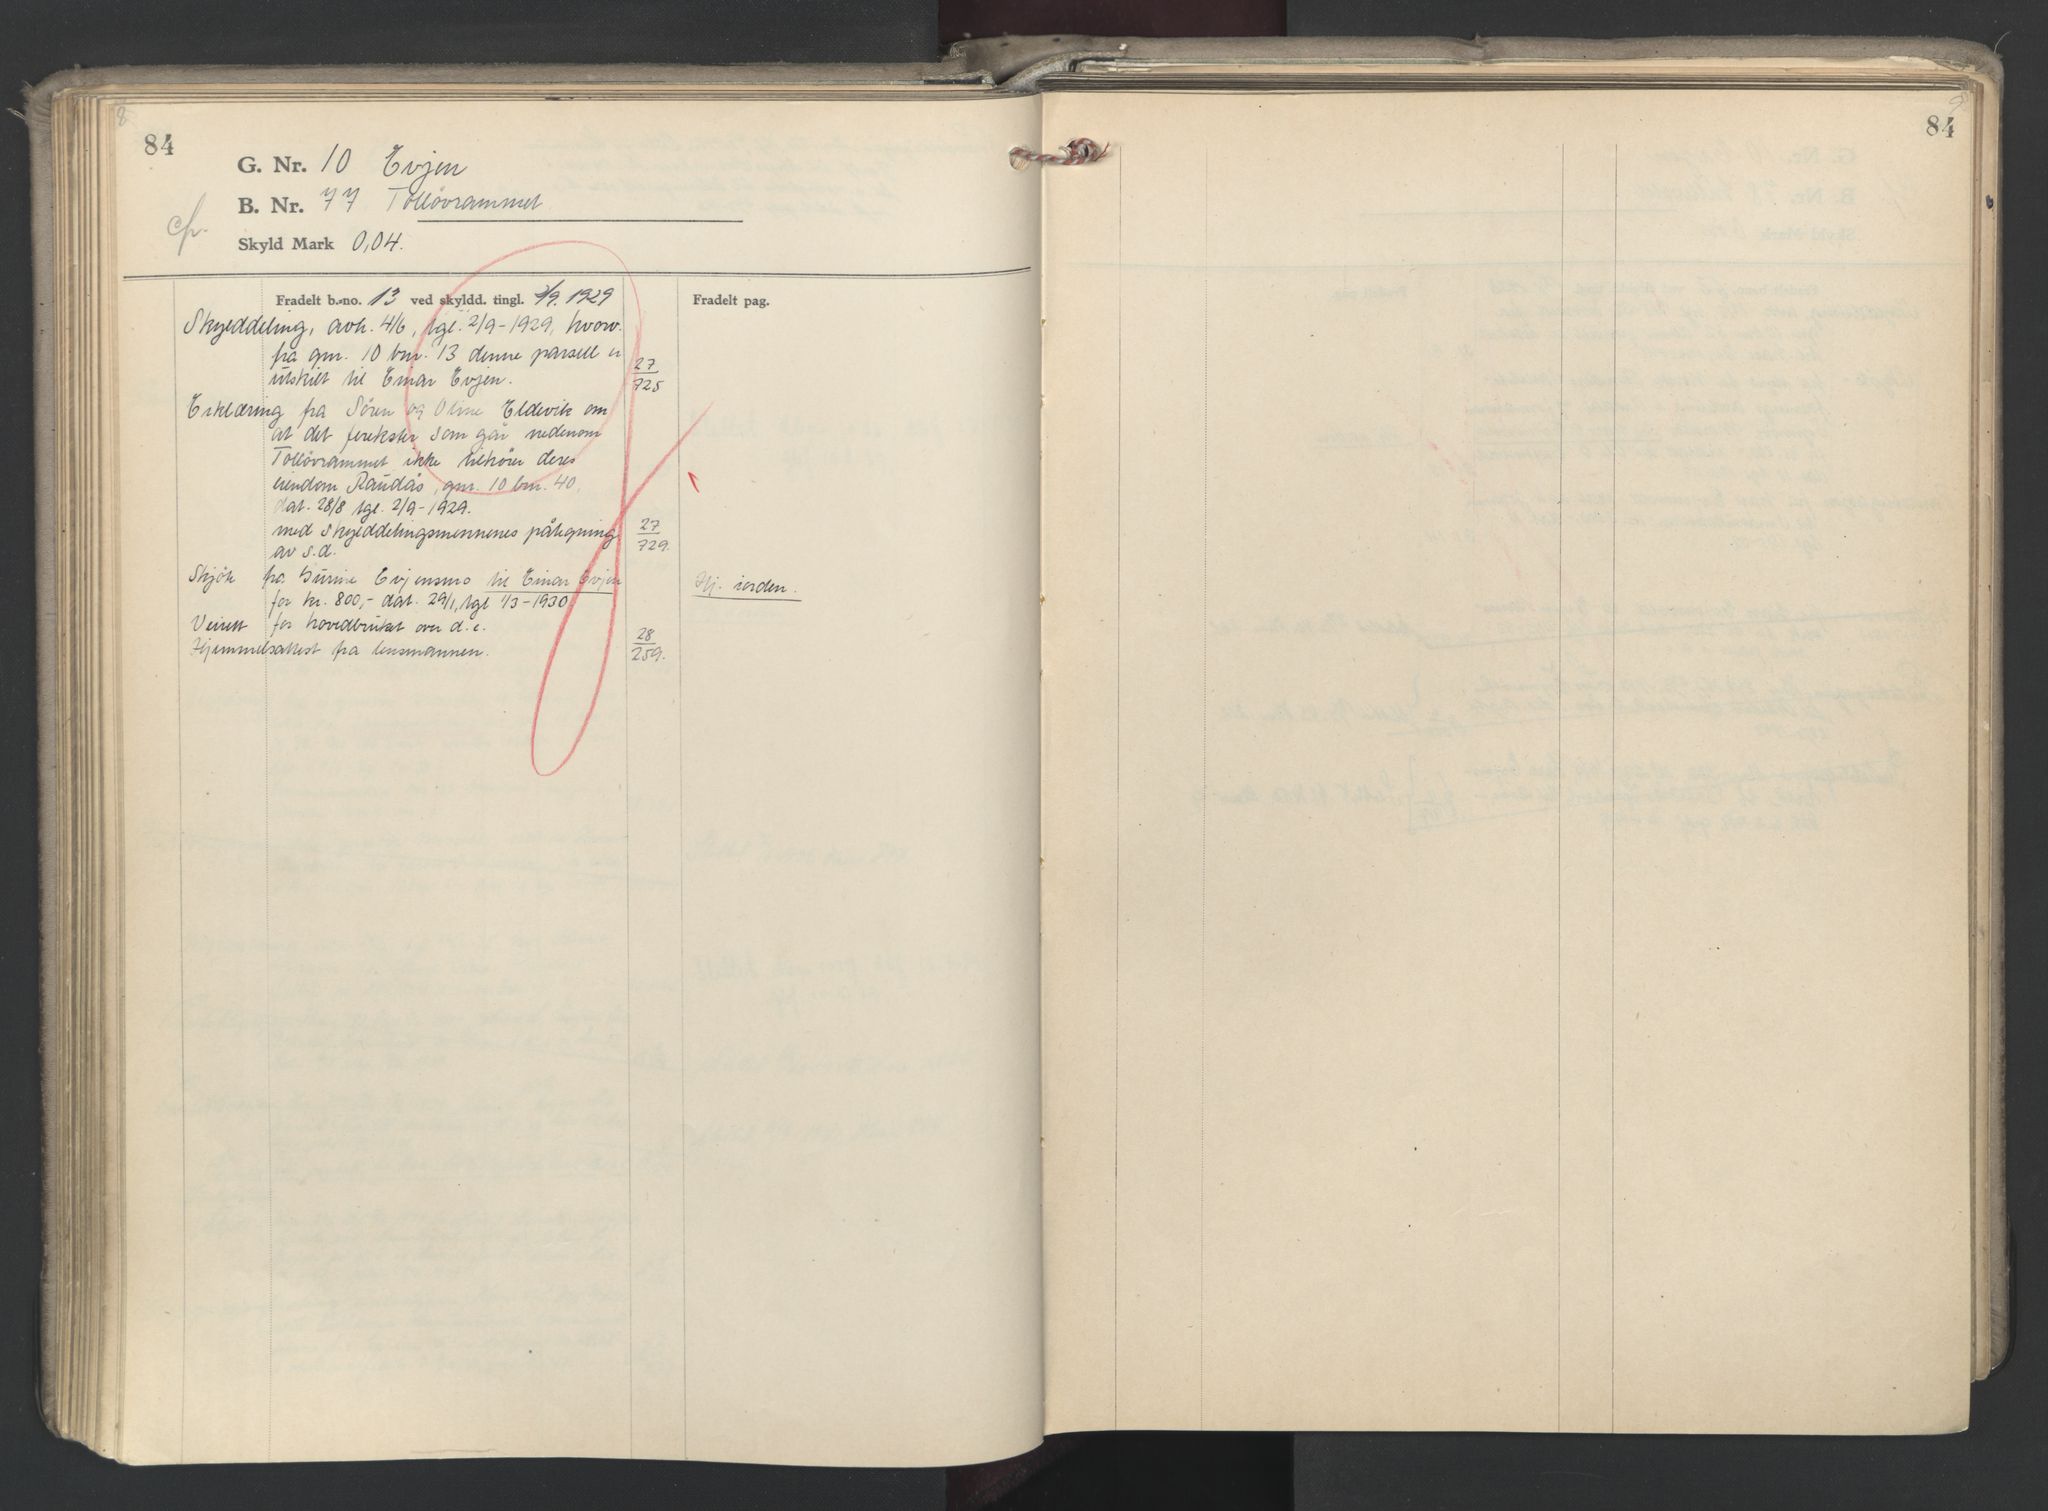 84
G. Nr. 10 Evjen
B. Nr. 77 Tollövrammet
Skyld Mark 0,04.
Fradelt b.-no. 13 ved skyldd. tingl. 2/9. 1929
Fradelt pag.
Skylddeling, avh. 4/6, tgl. 2/9-1929, hvorv.
fra gnr. 10 bnr. 13 denne parsell er
utskilt til Einar Evjen. 27/725
Erklæring fra Sören og Oline Eldevik om
at det ferikster som går nedenom
Tollövrammet ikke tilhörer deres
eiendom Raudås, gnr. 10 bnr. 40,
dat. 28/8 tgl. 2/9-1929.
med skylddelingsmennenes påtegning 27/729.
av s.d.
Skjöte fra Gurine Evjensmo til Einar Evjen Hj. i orden.
for kr. 800,- dat. 29/1, tgl 1/3-1930
Veirett for hovedbruket over d.e.
Hjemmelsattest fra lensmannen. 28/259.
84